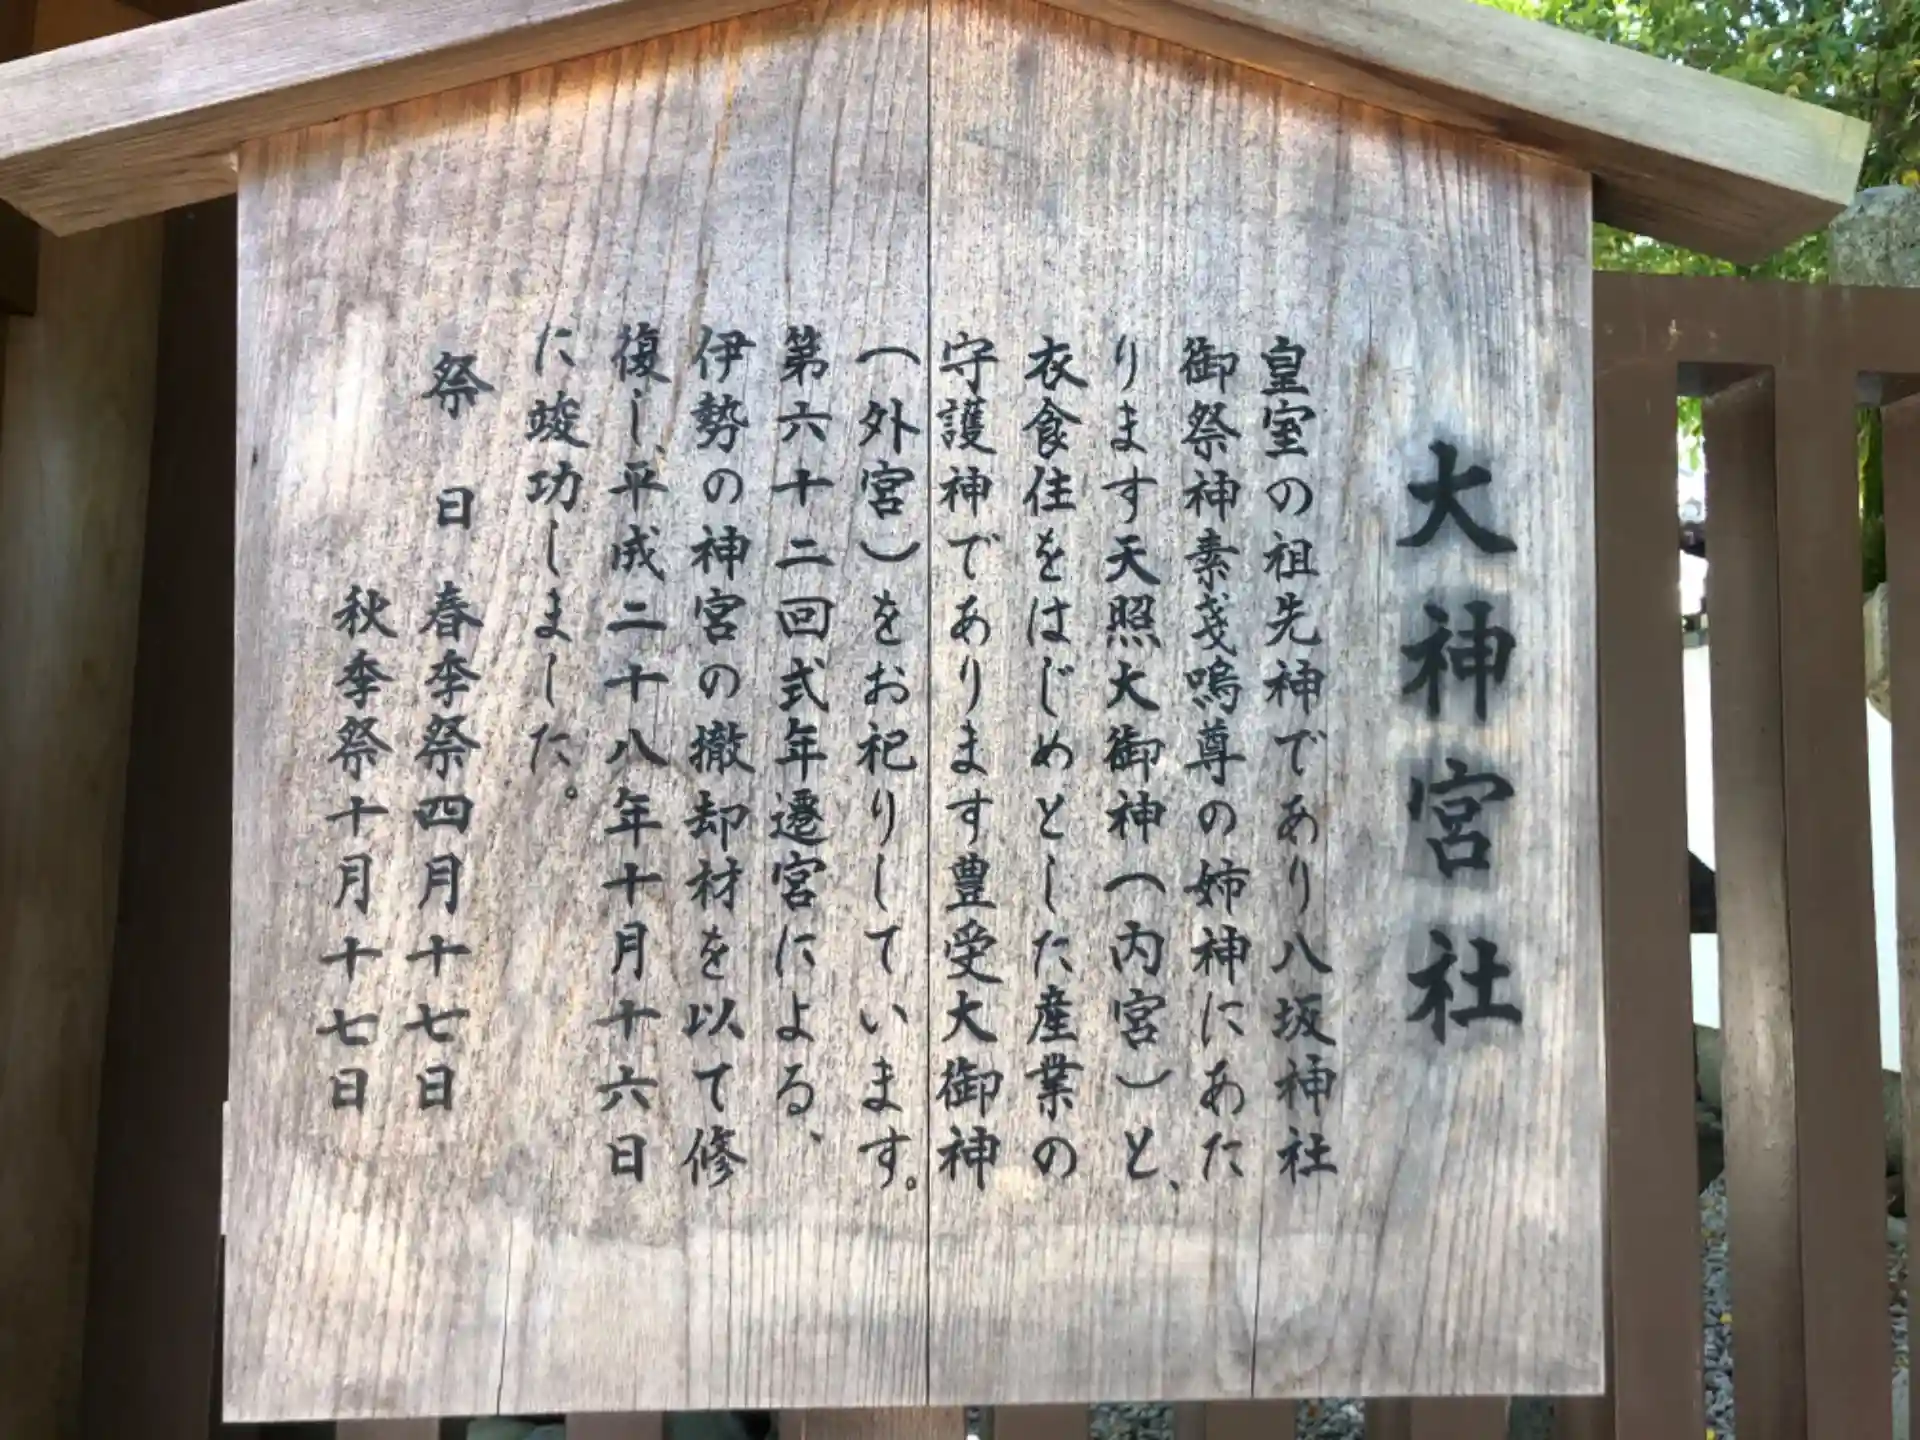 大神宮社
皇室の祖先神であり八坂神社
御祭神素戔嗚尊の姉神にあた
ります天照大御神（内宮）と、
衣食住をはじめとした産業の
守護神であります豊受大御神
（外宮）をお祀りしています。
第六十二回式年遷宮による、
伊勢の神宮の撤却材を以て修
復し、平成二十八年十月十六日
に竣功しました。
祭日 春季祭四月十七日
秋季祭十月十七日